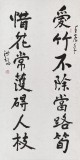 愛竹不除當路筍
惜花常護礙人枝